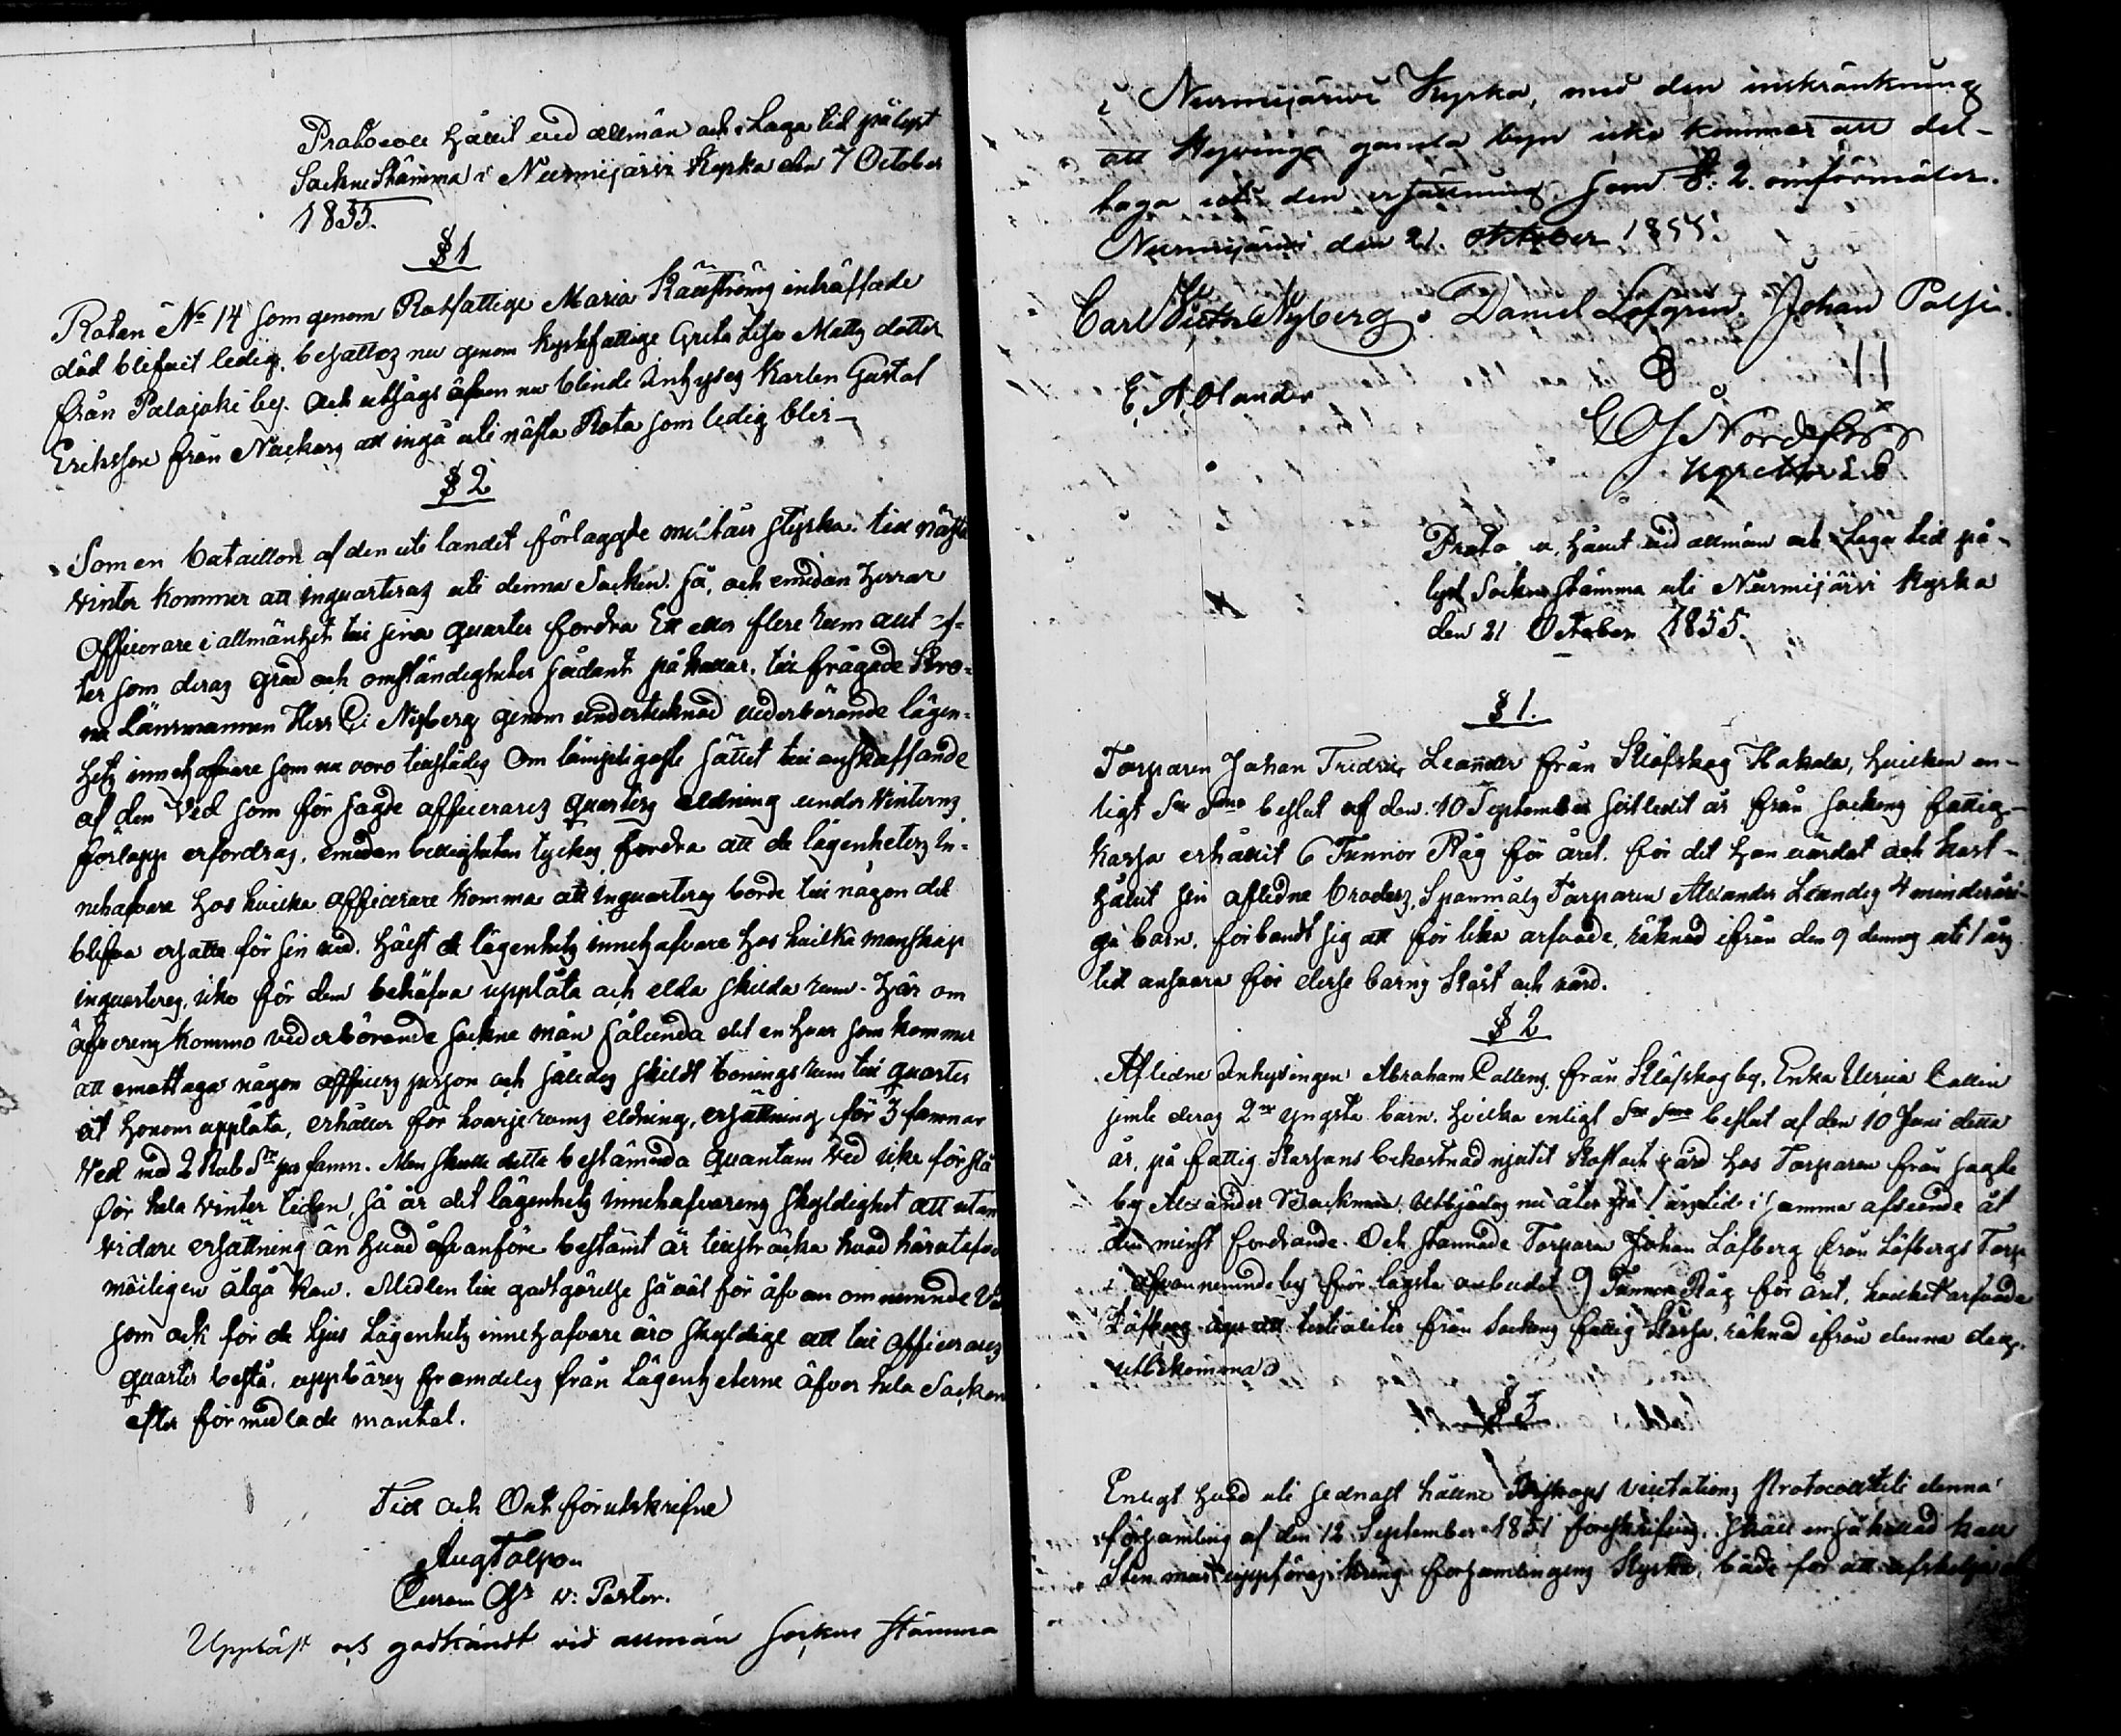 Protocoll hållit vid allmän och Laga tid pålyst
Sockne Stämma i Nurmijärvi Kyrka den 7 October
1855.
§ 1
Rotan No 14 som genom Rotfattige Maria inträffade
död blefvit ledig, besattes nu genom Kyrkfattige Greta Lisa Matts dotter
från Palajoki by. Och utsågs äfven nu blinde Inhyses Karlen Gustaf
Eriksson från Nackars att ingå uti nästa Rota som ledig blir.
§ 2
Som en bataillon af den uti landet förlaggde militair styrka till nästa
Vinter kommer att inquarteras uti denna Socken. Så, och emedan Herrar
Officerare i allmänhet till sina quarter fordra Ett eller flere rum allt ef-
ter som deras grad och omständigheter sådant påkallar, tillfrågade Kro-
no Länsmannen Herr C: Nyberg genom undertecknad vederbörande lägen-
hets innehafvare som nu voro tillstädes Om lämpligaste sättet till anskaffande
af den Ved som för sagde officerares quarters eldning under Vinterns
förlopp erfordras, emedan billigheten tyckes fordra att de lägenheters In-
nehafvare hos hvilka officerare komma att inquarteras borde till någon del
blifva ersatta för sin ved, hälst de lägenhets innehafvare hos hvilka manskap
inquarteras, icke för dem behöfva upplåta och elda skilda rum. Här om
öfverens kommo vederbörande Sockne män sålunda att en hvar som kommer
att emottaga någon officers person och således skildt bonings rum till quarter
åt honom upplåta, erhåller för hvarje rums eldning, ersättning för 3 famnar
Ved med 2 Rub Sr per famn. Men skulle detta bestämda quantum Ved icke förslå
för hela Vinter tiden, så är det lägenhets innehafvarens skyldighet att utan
vidare ersättning än hvad ofvanföre bestämt är tillsträcka hvad härutöfver
möjligen åtgå kan. Medlen till godtgörelse så väl för ofvan omnämnde Ved
som ock för de ljus Lägenhets innehafvare äro skyldige att till Officerares
quarter bestå, uppbäres framdeles från Lägenheterne öfver hela Socken
efter förmedlade mantal.
Tid och Ort förutskrifne
Aug Talpo
v: Pastor.
Uppläst och godkändt vid allmän Socken stämma
i Nurmijärvi Kyrka, med den inskränkning
att Hyvinge gamla by icke kommer att del-
taga uti den ersättning som §: 2. omförmäler.
Nurmijärvi den 21. Oktober 1855.
Carl Victor Nyberg Daniel Löfgren. Johan Palsi.
E, A, Olander
Nordfors
Prot. hållit vid allmän och Laga tid på-
lyst Sockne stämma uti Nurmijärvi Kyrka
den 21 October 1855.
§ 1.
Torparen Johan Fridric Leander från Klöfskog Hakala, hvilken en-
ligt beslut af den 10 September sistledit år från Sockens fattig-
kassa erhållit 6 Tunnor Råg för året, för det han vårdat och kost-
hållit sin aflidne broders, Spannmåls Torparen Alexander Leanders 4 minderåri-
ga barn, förbandt sig att för lika arfvode, räknad ifrån den 9 dennes uti 1 års
tid ansvara för desse barns Kost och vård.
§ 2
Aflidne Inhysingen Abraham Callens från Klöfskog by, Enka Ulrica Callin
jemte deras 2ne yngsta barn, hvilka enligt beslut af den 10 Juni detta
år, på fattig Kassans bekostnad njutit Kost och vård hos Torparen från sagde
by Alexander Backman, Utbjödos nu åter på 1 års tid i samma afseende åt
den minst fordrande. Och stannade Torparen Johan Löfberg från Löfbergs Torp
i ofvannemnde by för lägsta anbudet 9 Tunnor Råg för året, hvilket arfvode
Löfberg äger att tertialiter från Sockens fattig Kassa, räknad ifrån denna dag,
utbekomma.
§ 3
Enligt hvad uti sednast hållne Biskops Visitations Protocoll uti denna
församling af den 12 September 1851 föreskrifvits, skall en så kallad kall
Sten mur uppföras kring församlingens Kyrka, både för att afskilja